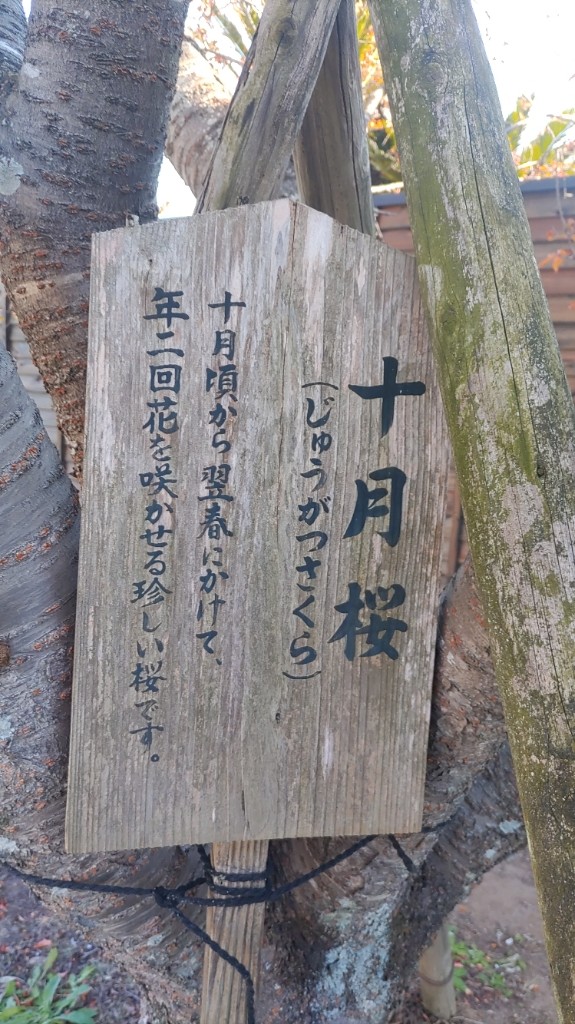 十月桜
（じゅうがつさくら）
十月頃から翌春にかけて、
年二回花を咲かせる珍しい桜です。